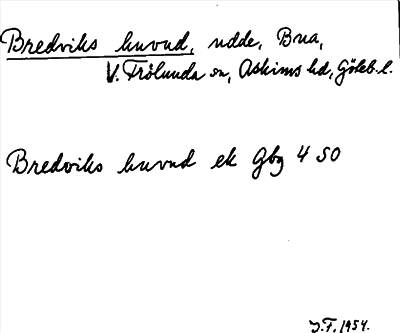 Bredviks huvud, udde, Bua,
V. Frölunda sn, Askims hd, Göteb. l.
Bredviks huvud ek Gbg 4 SO
J.F. 1954.